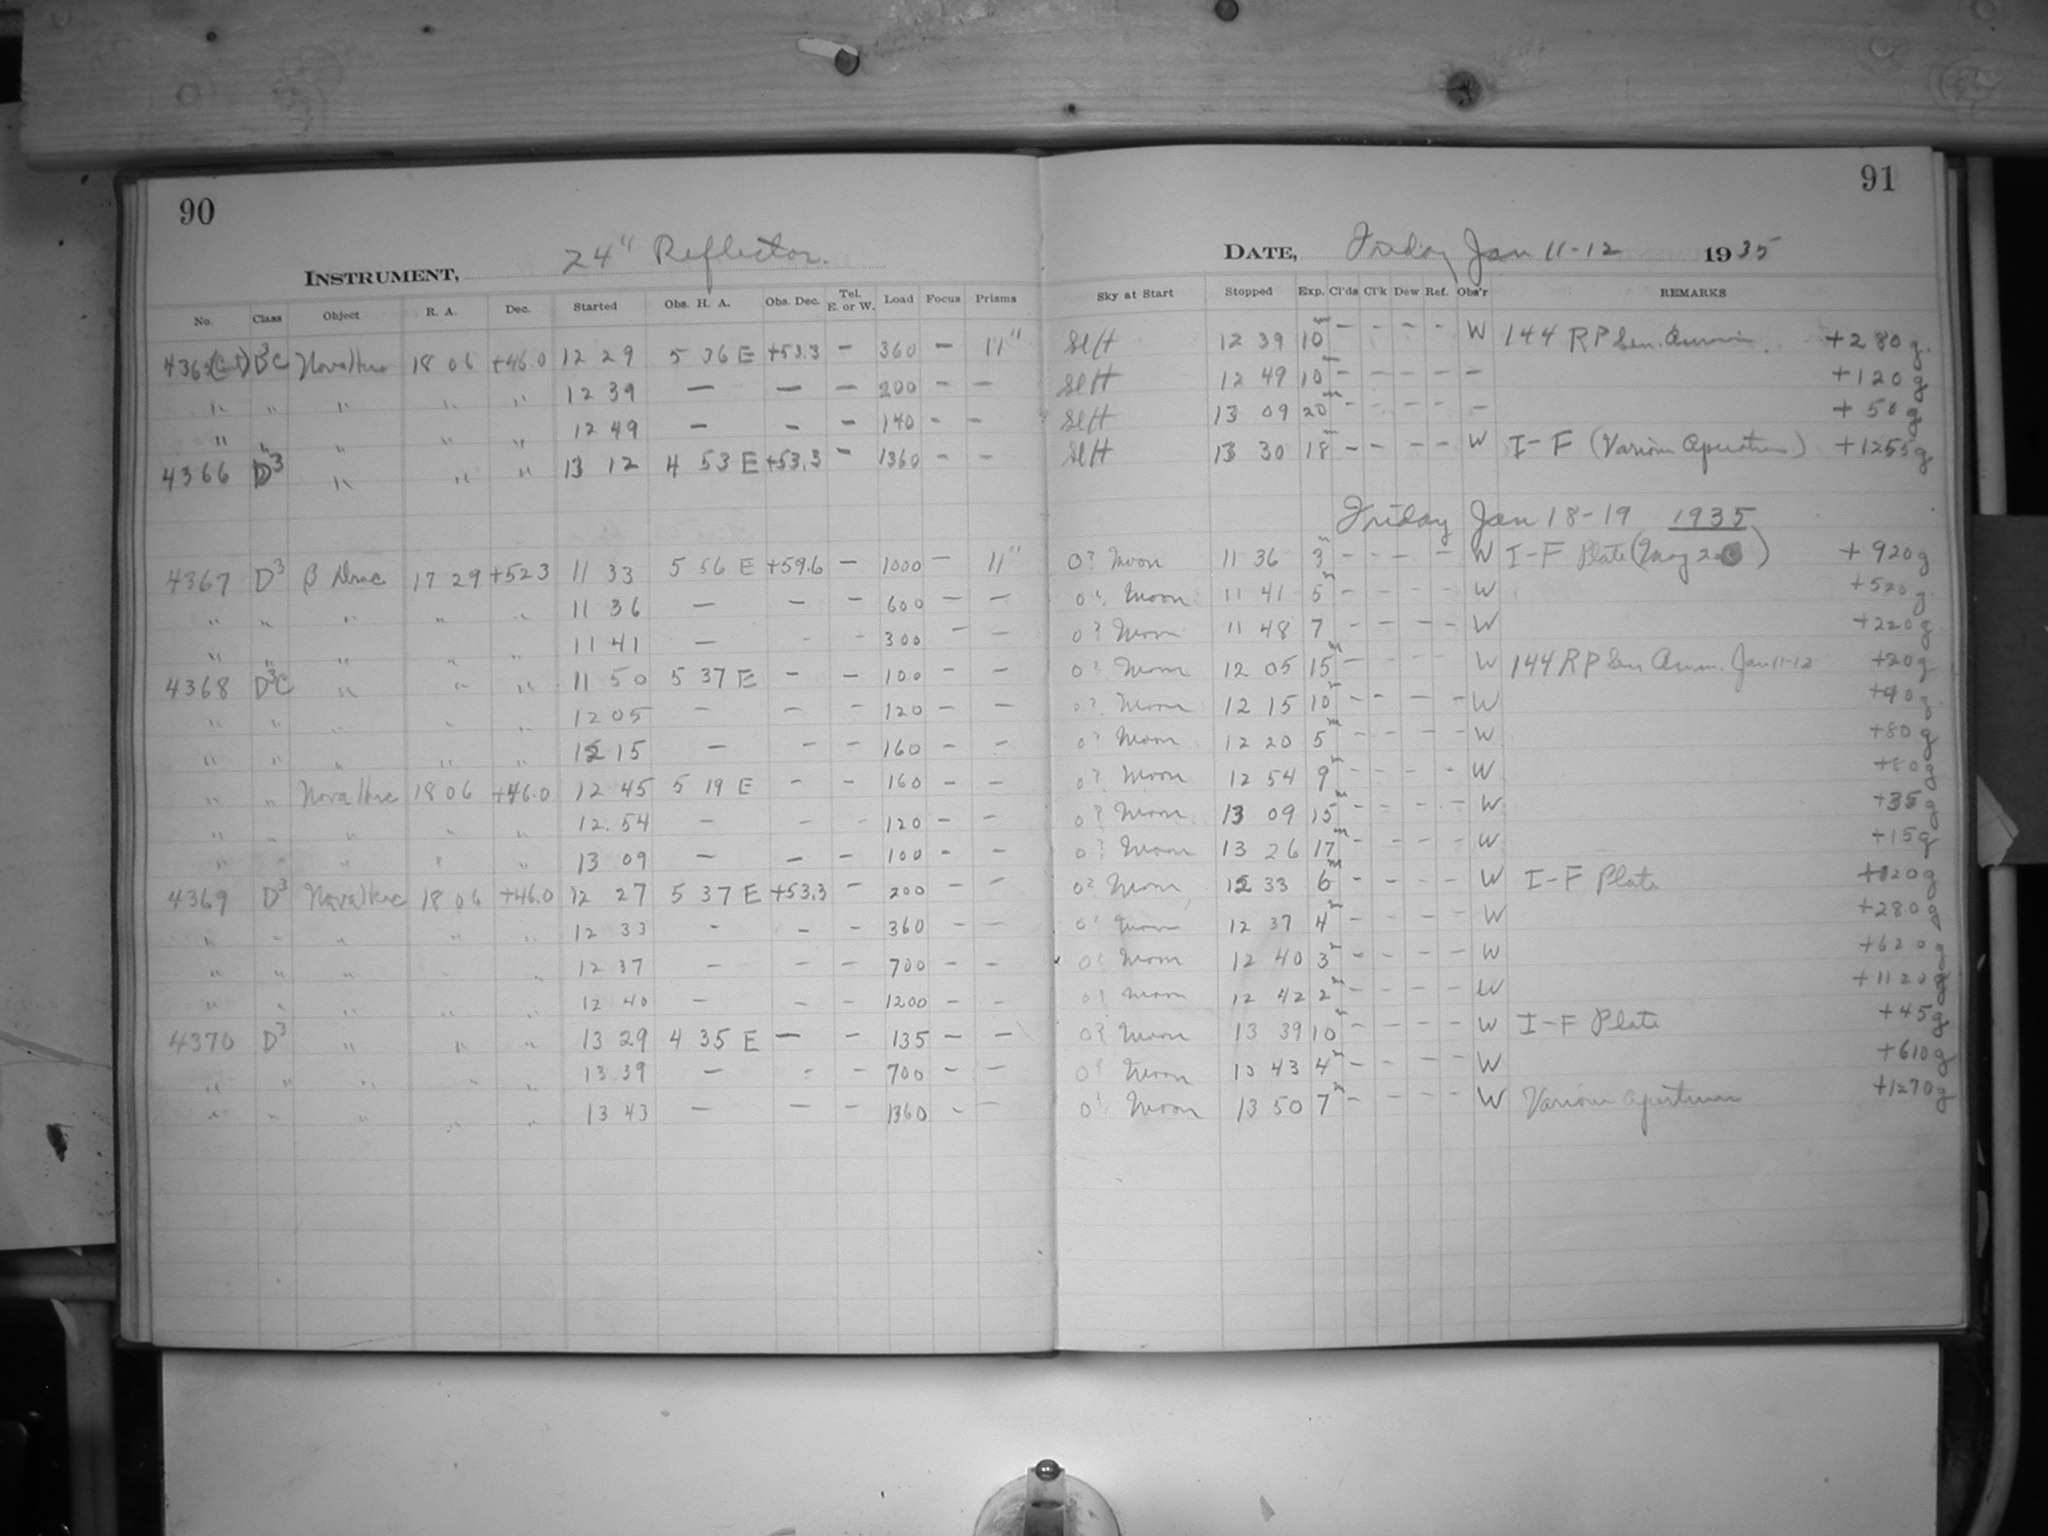 90
91
INSTRUMENT, 24" Reflector.
DATE, Friday Jan 11-12 1935
No. Class Object R. A. Dec. Started Obs. H. A. Obs. Dec. Tel. E. or W. Load Focus Prisms Sky at Start Stopped Exp. Cl'ds Cl'k Dew Ref. Obs'r REMARKS
D3C Nova Herc 18 06 +46.0 12 29 5 36 E +53.3 — 360 — 11" 12 39 10m — — — — W 144 R P Sen. +280g.
" " " " " 12 39 — — — 200 — — 12 49 10m — — — — — +120g
" " " " " 12 49 — — — 140 — — 13 09 20m — — — — — +50g
4366 D3 " " " 13 12 4 53 E +53.3 — 1360 — — 13 30 18m — — — — W I-F (Various Apertures) +1255g
Friday Jan 18-19 1935
4367 D3 β Drac 17 29 +52 3 11 33 5 56 E +59.6 — 1000 — 11" 0? Moon 11 36 3m — — — — W I-F Plate (May 26) +920g
" " " " " 11 36 — — — 600 — — 0? Moon 11 41 5m — — — — W +520g
" " " " " 11 41 — - - 300 — — 0? Moon 11 48 7 — — — — W +220g
4368 D3C " " " 11 50 5 37 E — — 100 — — 0? Moon 12 05 15m — — — — W 144 R P Sen Jan 11-12 +20g
" " " " " 12 05 — — — 120 — — 0? Moon 12 15 10m — — — — W +40g
" " " " " 12 15 — — — 160 — — 0? Moon 12 20 5m — — — — W +80g
" " Nova Herc 18 06 +46.0 12 45 5 19 E — — 160 — — 0? Moon 12 54 9m — — — — W +80g
" " " " " 12.54 — — - 120 — — 0? Moon 13 09 15m — — — — W +35g
" " " " " 13 09 — — — 100 — — 0? Moon 13 26 17m — — — — W +15g
4369 D3 Nova Herc 18 06 +46.0 12 27 5 37 E +53.3 — 200 — — 0? Moon 12 33 6m — — — — W I-F Plate +120g
" " " " " 12 33 — — — 360 — — 0? Moon 12 37 4m — — — — W +280g
" " " " " 12 37 — — — 700 — — 0? Moon 12 40 3m — — — — W +620g
" " " " " 12 40 — — — 1200 — — 0? Moon 12 42 2m — — — — W +1120g
4370 D3 " " " 13 29 4 35 E — — 135 — — 0? Moon 13 39 10m — — — — W I-F Plate +45g
" " " " " 13 39 — - — 700 — — 0? Moon 13 43 4m — — — — W +610g
" " " " " 13 43 — — — 1360 - — 0? Moon 13 50 7m — — — — W Various apertures +1270g